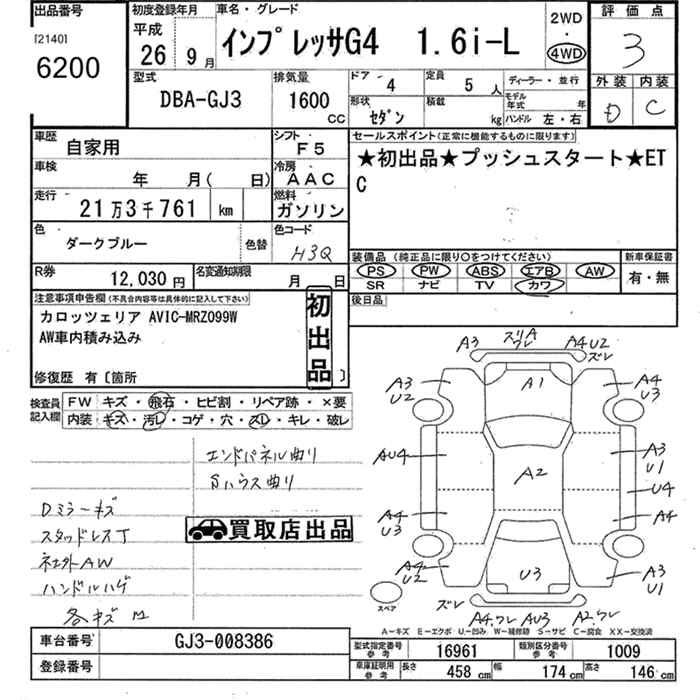 出品番号 初度登録年月 車名・グレード 2WD 評価点
[2140] 平成 インプレッサG4 1.6i-L 4WD 3
6200 26年 9月
型式 排気量 ドア 4 定員 5人 ディーラー・並行 外装 内装
DBA-GJ3 1600cc 形状 セダン 積載 kg モデル年式 年 D C
ハンドル 左・右
車歴 自家用 シフト F5 セールスポイント(正常に機能するものに限ります)
車検 年 月( 日) 冷房 AAC ★初出品★プッシュスタート★ET
走行 21万3千761 km 燃料 ガソリン C
色 ダークブルー 色替 色コード H3Q 装備品 (純正品に限り○をつけてください) 新車保証書
PS PW ABS エアB AW 有・無
R券 12,030円 名変通知期限 月 日 SR ナビ TV カワ
注意事項申告欄(不具合内容等は具体的に記入して下さい) 初出品 後日品
カロッツェリア AVIC-MRZ099W
AW車内積み込み
修復歴 有〔箇所 〕
検査員記入欄 FW キズ・飛石・ヒビ割・リペア跡・×要
内装 キズ・汚レ・コゲ・穴・スレ・キレ・破レ
エンドパネル曲り
Sハウス曲り
Dミラーキズ
スタッドレスT
社外AW
ハンドルハゲ
各キズ M
買取店出品
A3 スリA ワレ A4 U2 ズレ
A3 U2 A1 A4 U3
AU4 A2 A3 U1
U4
A4 U3 A4
A4 U2 U3 A3 U1
スペア ズレ A4.ワレ AU3 A2.ワレ
A-キズ E-エクボ U-凹み W-補修跡 S-サビ C-腐食 XX-交換済
車台番号 GJ3-008386 型式指定番号 参考 16961 類別区分番号 参考 1009
登録番号 車庫証明用 参考 長さ 458 cm 幅 174 cm 高さ 146 cm